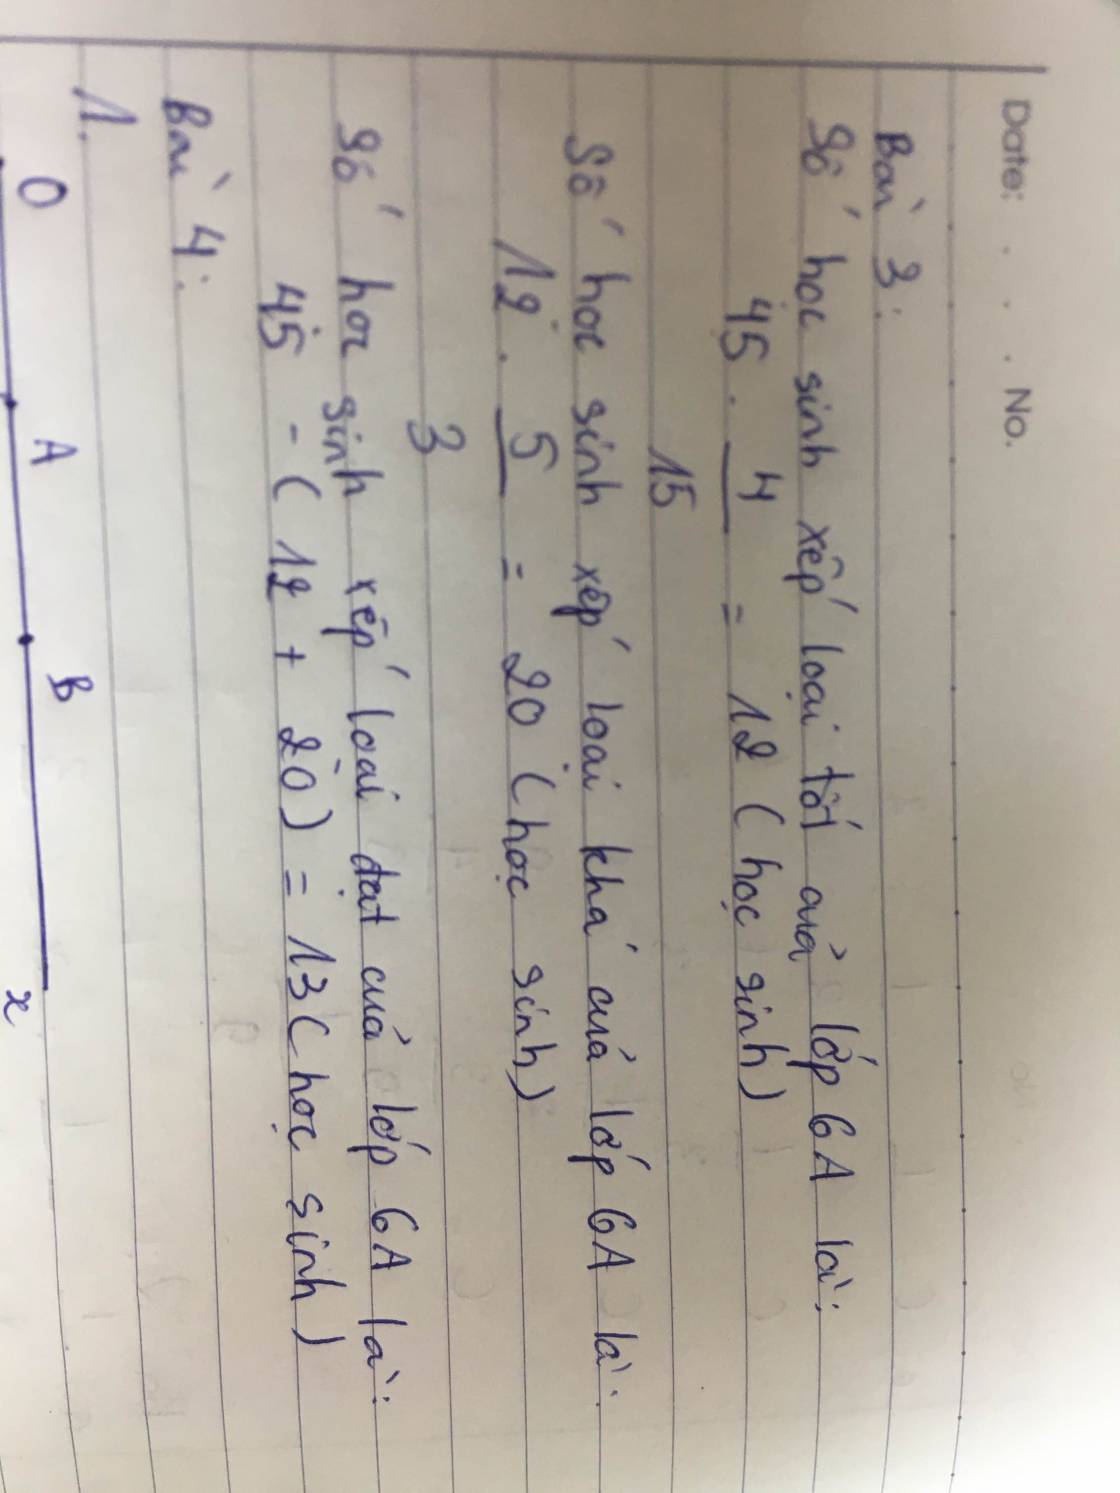 Date: . . . . No.
Bài 3:
Số học sinh xếp loại tốt của lớp 6A là:
45 . 4/15 = 12 (học sinh)
Số học sinh xếp loại khá của lớp 6A là:
12 . 5/3 = 20 (học sinh)
Số học sinh xếp loại đạt của lớp 6A là:
45 - (12 + 20) = 13 (học sinh)
Bài 4:
1.
O A B x